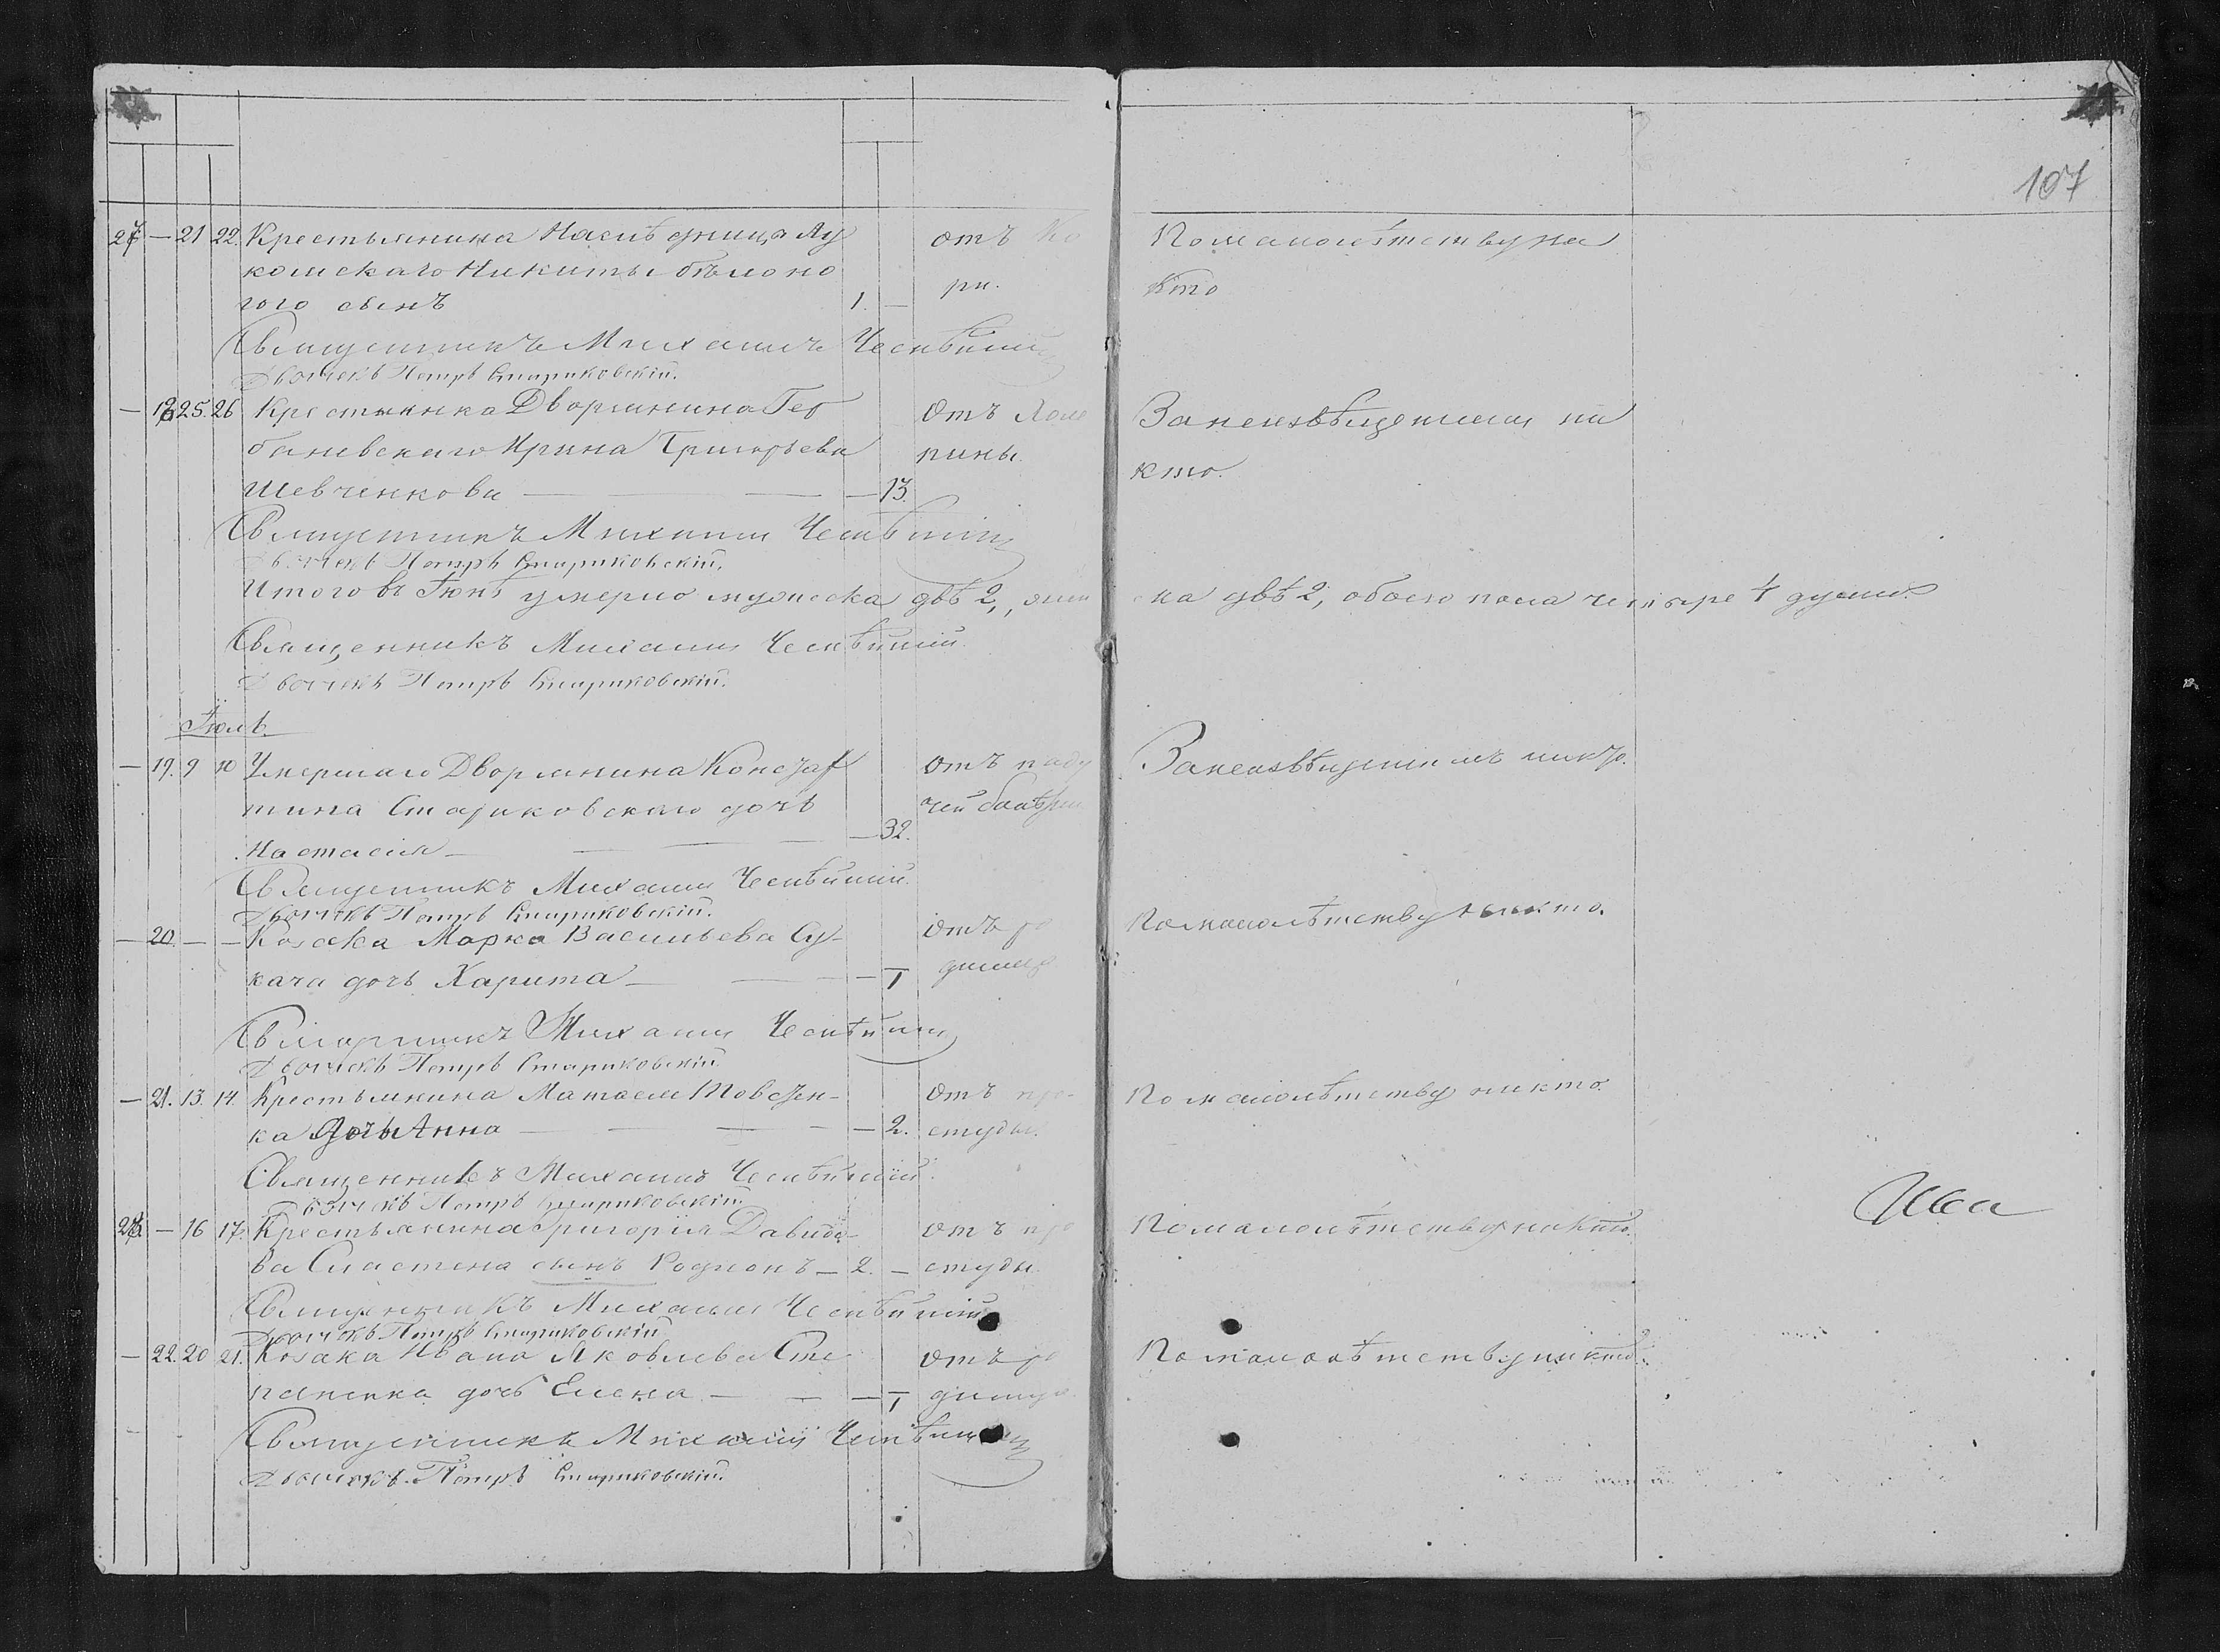 107
27 — 21 22. Крестьянина Наслѣдница Лу
комскаго Никиты Бѣлоно
гого сынъ 1. —
отъ ко
ри.
По малолѣтству ни
кто
Священникъ Михаилъ
Дьячекъ Петръ Стариковскій.
— 18 25. 26 Крестьянка Дворянина Гер
бановскаго Ирина Григорьева
Шевченкова — 13.
Отъ Холе
рины.
За неизвѣщеніемъ ни
кто.
Священникъ Михаилъ
Дьячекъ Петръ Стариковскій.
Итого въ Іюнѣ умерло мужеска двѣ 2, жен ска двѣ 2, обоего пола четыре 4 души.
Священникъ Михаилъ
Дьячекъ Петръ Стариковскій.
Іюль.
— 19. 9 10 Умершаго Дворянина Констан
тина Стариковскаго дочь
Настасія — 32.
Отъ паду
чей болѣзни
За неизвѣщеніемъ никто.
Священникъ Михаилъ
Дьячекъ Петръ Стариковскій.
— 20. — — Козака Марка Васильева Су-
кача дочь Харита — — 1
Отъ ро
димца
По малолѣтству никто.
Священникъ Михаилъ
Дьячекъ Петръ Стариковскій.
— 21. 13. 14. Крестьянина Матвея Шовчен-
ка Дочь Анна — 2.
Отъ про-
студы.
По малолѣтству никто.
Священникъ Михаилъ
Дьячекъ Петръ Стариковскій.
28 — 16 17. Крестьянина Григорія Давидо-
ва Сластена сынъ Родионъ — 2. —
отъ про
студы.
По малолѣтству никто.
Священникъ Михаилъ
Дьячекъ Петръ Стариковскій
— 22. 20 21. Козака Ивана Яковлева Сте
паненка дочь Елена — — 1
Отъ ро
димца
По малолѣтству никто.
Священникъ Михаилъ
Дьячекъ Петръ Стариковскій.